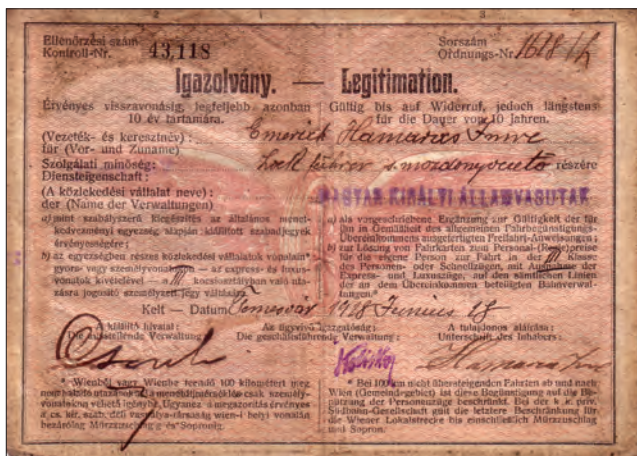 2 1 3
Ellenőrzési szám
Kontroll-Nr. 43,118
Sorszám
Ordnungs-Nr.
Igazolvány. — Legitimation.
Érvényes visszavonásig, legfeljebb azonban
10 év tartamára.
Gültig bis auf Widerruf, jedoch längstens
für die Dauer von 10 Jahren.
(Vezeték- és keresztnév) :
für (Vor- und Zuname)
Emerich Hamaras Imre
Szolgálati minőség:
Diensteigenschaft :
Lock führer s. mozdonyvezető részére
(A közlekedési vállalat neve) :
der (Name der Verwaltungen)
MAGYAR KIRÁLYI ÁLLAMVASUTAK
a) mint szabályszerű kiegészítés az általános menet-
kedvezményi egyezség alapján kiállított szabadjegyek
érvényességére;
b) az egyezségben részes közlekedési vállalatok vonalain*
gyors- vagy személyvonatokon — az express- és luxus-
vonatok kivételével — a III. kocsiosztályban való uta-
zásra jogosító személyzeti jegy váltására.
a) als vorgeschriebene Ergänzung zur Gültigkeit der für
ihn in Gemäßheit des allgemeinen Fahrbegünstigungs-
Übereinkommens ausgefertigten Freifahrt-Anweisungen ;
b) zur Lösung von Fahrkarten zum Personal-(Regie)preise
für die eigene Person zur Fahrt in der III Klasse
des Personen- oder Schnellzügen, mit Ausnahme der
Express- und Luxuszüge, auf den sämtlichen Linien
der an dem Übereinkommen beteiligten Bahnverwal-
tungen.*
Kelt — Datum Temesvár 1918 Junius 18
A kiállító hivatal :
Die ausstellende Verwaltung :
Az ügyvivő igazgatóság:
Die geschäftsführende Verwaltung :
A tulajdonos aláírása :
Unterschrift des Inhabers :
* Wienből vagy Wienbe teendő 100 kilométert meg
nem haladó utazásnál ez a menetdíjmérséklés csak személy-
vonatokon vehető igénybe. Ugyanez a megszorítás érvényes
a cs. kir. szab. déli vaspálya-társaság wien-i helyi vonalán
bezárólag Mürzzuschlag-g és Sopronig.
* Bei 100 km nicht übersteigenden Fahrten ab und nach
Wien (Gemeindegebiet) ist diese Begünstigung auf die Be-
nützung der Personenzüge beschränkt. Bei der k. k. priv.
Südbahn-Gesellschaft gilt die letztere Beschränkung für
die Wiener Lokalstrecke bis einschließlich Mürzzuschlag
und Sopron.